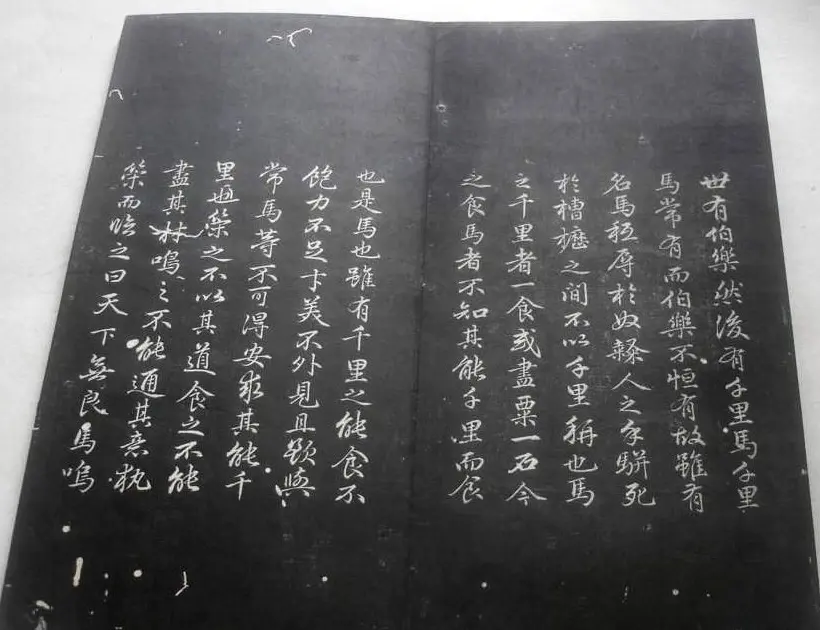 世有伯樂然後有千里馬千里
馬常有而伯樂不恒有故雖有
名馬秖辱於奴隸人之手駢死
於槽櫪之間不以千里稱也馬
之千里者一食或盡粟一石今
之食馬者不知其能千里而食
也是馬也雖有千里之能食不
飽力不足才美不外見且欲與
常馬等不可得安求其能千
里也策之不以其道食之不能
盡其材鳴之不能通其意執
策而臨之曰天下無良馬嗚